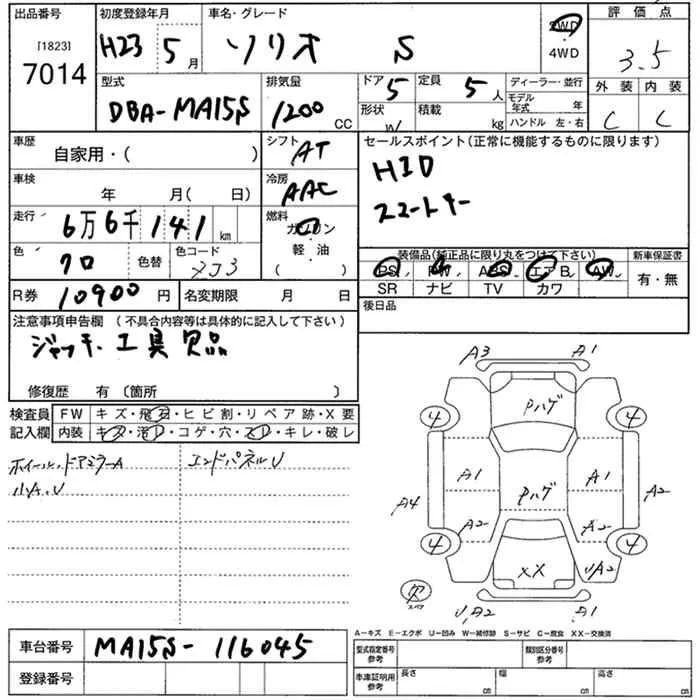 出品番号 初度登録年月 車名・グレード 評価点
[1823]
7014 H23 5月 ソリオ S 2WD 4WD 3.5
型式 排気量 ドア 定員 ディーラー・並行 外装 内装
DBA-MA15S 1200 CC 5 5人 モデル年式 年 C C
形状 積載 kg ハンドル 左・右
車歴 自家用・( ) シフト AT セールスポイント(正常に機能するものに限ります)
車検 年 月( 日) 冷房 AAC HID
走行 6万6千141 km 燃料 ガソリン 軽・油 ( ) スマートキー
色 クロ 色替 色コード ZJ3 装備品(純正品に限り丸をつけて下さい) 新車保証書
PS PW ABS エアB AW 有・無
SR ナビ TV カワ
R券 10900円 名変期限 月 日 後日品
注意事項申告欄 (不具合内容等は具体的に記入して下さい)
ジャッキ、工具欠品
修復歴 有 〔箇所 〕
検査員 FW キズ・飛石・ヒビ割・リペア跡・X要
記入欄 内装 キズ・汚レ・コゲ・穴・スレ・キレ・破レ
ホイール、ドアミラーA エンドパネルU
小A、U
A3 A1
Pハゲ
④ ④
A1 Pハゲ A1
A4 A2
A2 A2
④ ④
XX UA2
欠 スペア
U、A2 A1
A-キズ E-エクボ U-凹み W-補修跡 S-サビ C-腐食 XX-交換済
車台番号 MA15S-116045 型式指定番号 参考 類別区分番号 参考
登録番号 車庫証明用 参考 長さ cm 幅 cm 高さ cm